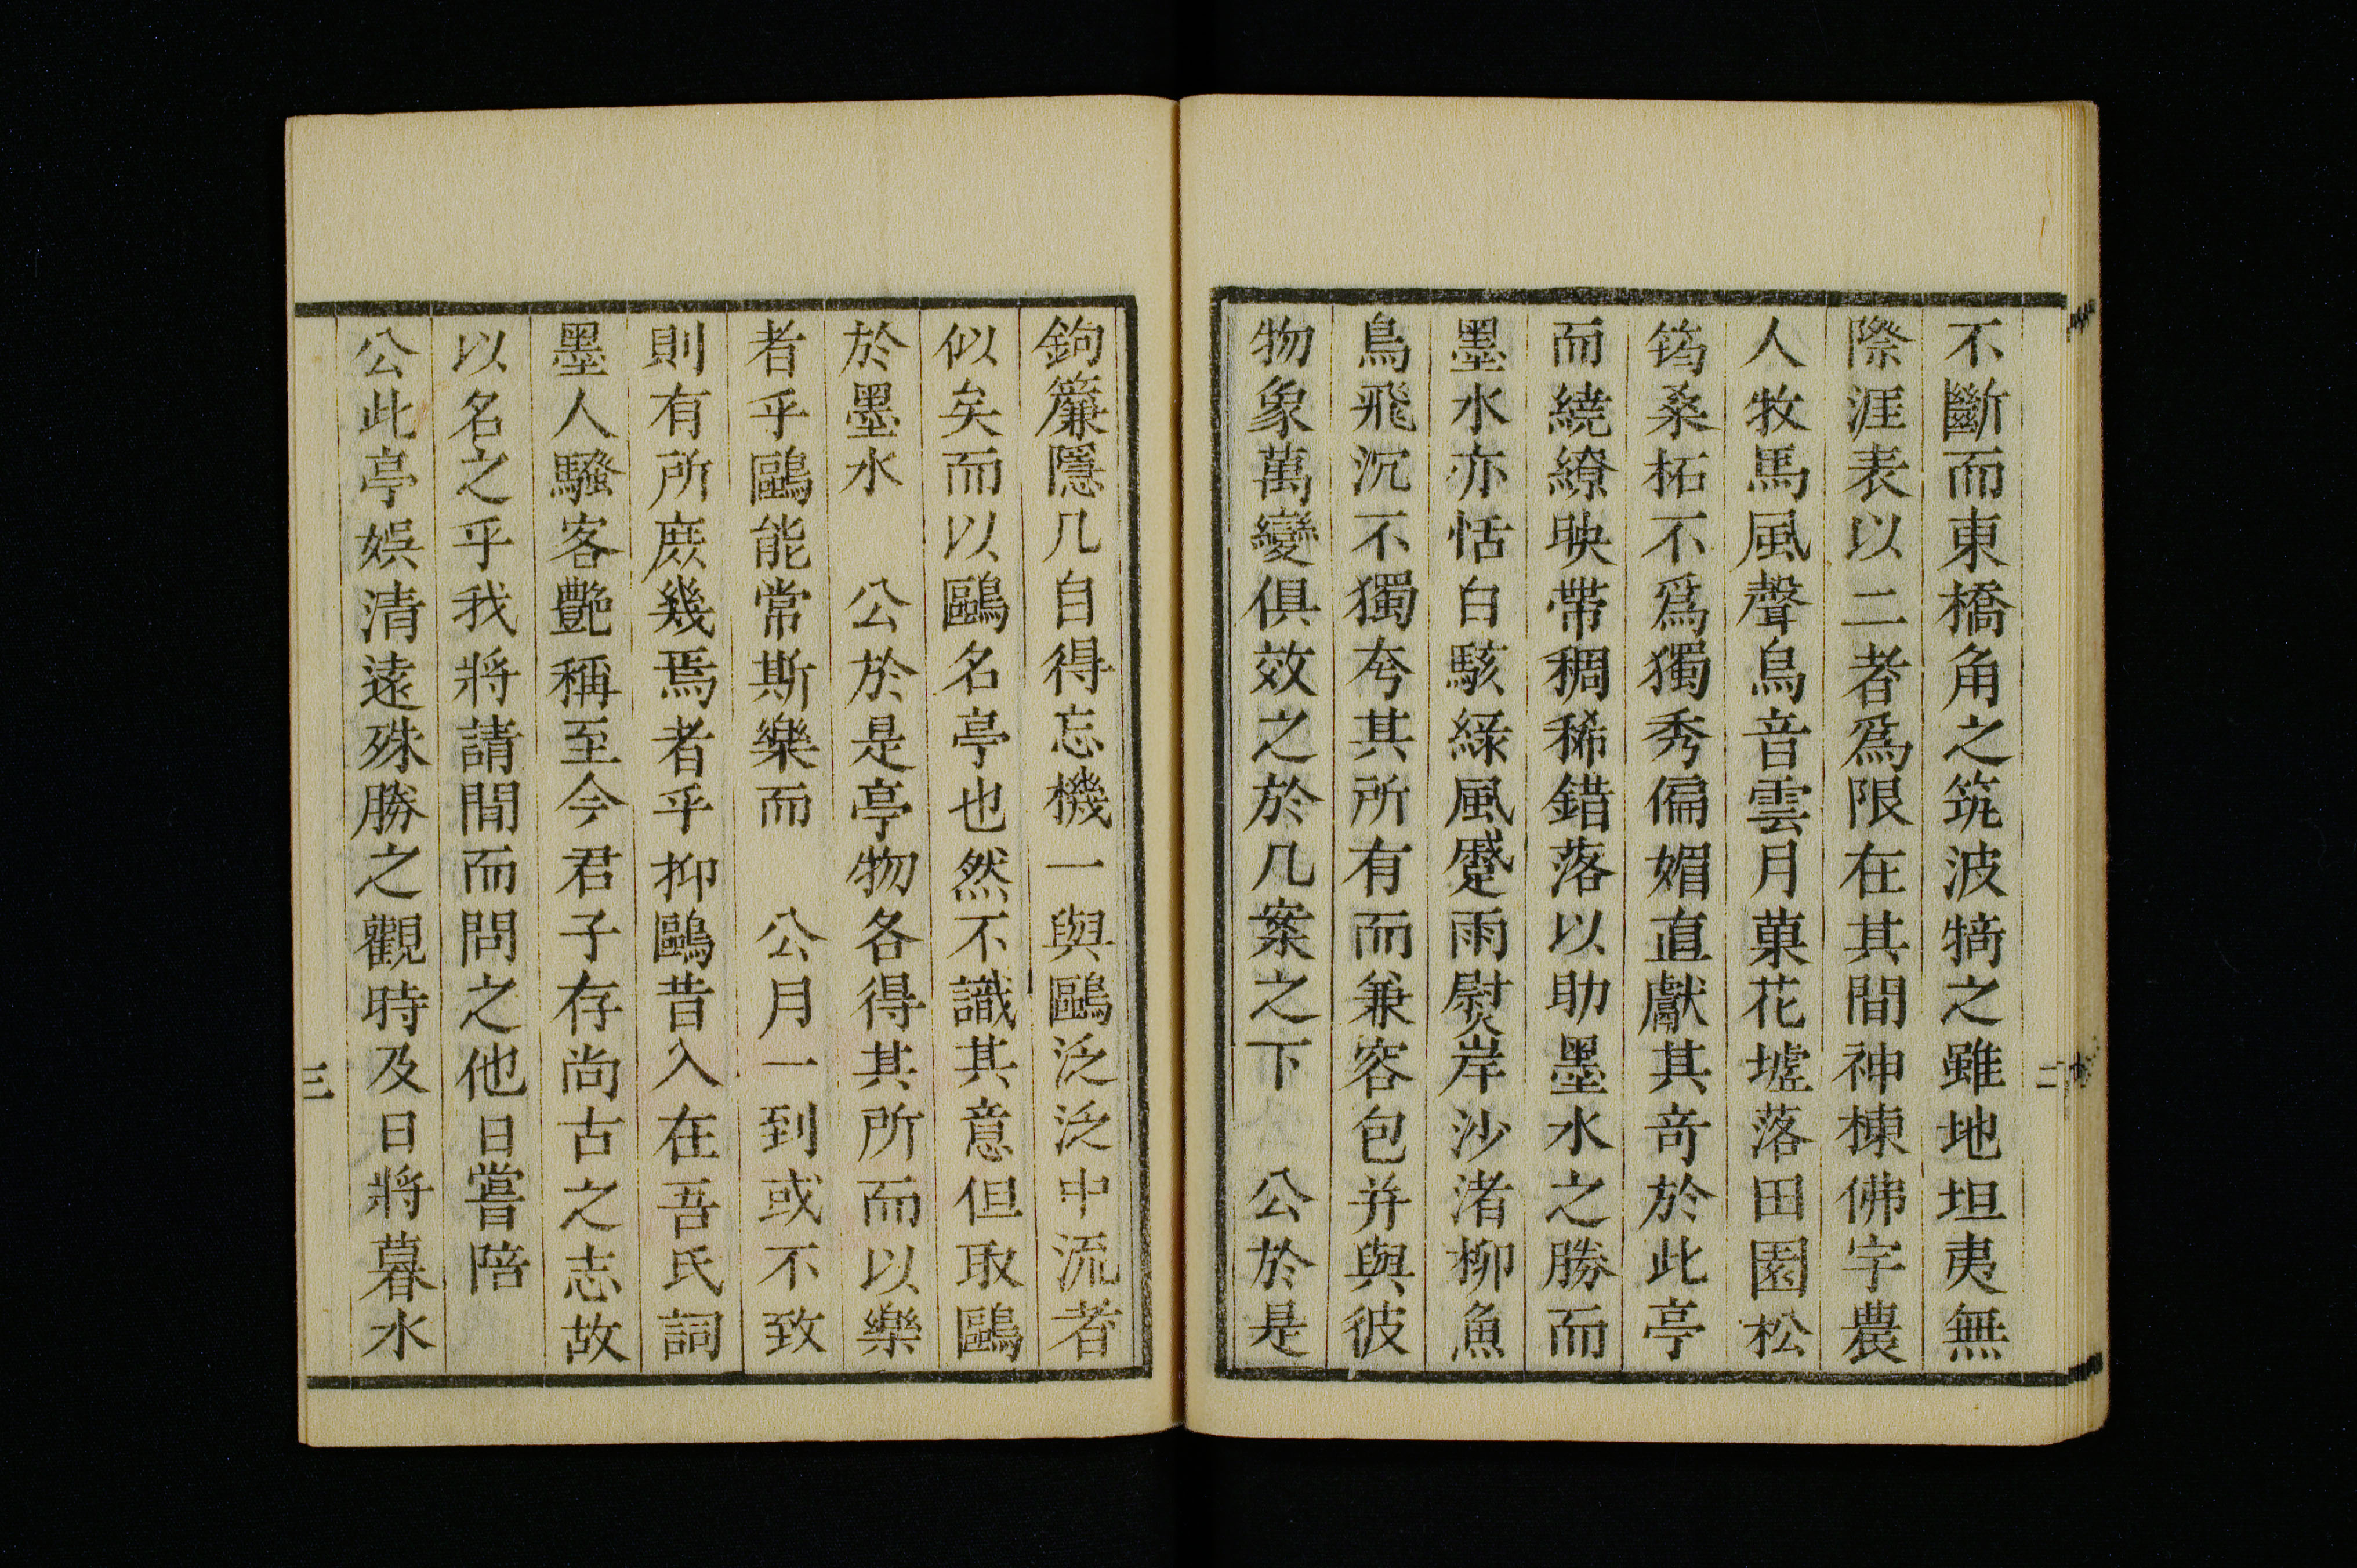 不斷而東橋角之筑波犄之雖地坦夷無
際涯表以二者爲限在其間神棟佛宇農
人牧馬風聲鳥音雲月菓花墟落田園松
筠桑柘不爲獨秀偏媚直獻其奇於此亭
而繞繚映帶稠稀錯落以助墨水之勝而
墨水亦恬白駭綠風蹙雨熨岸沙渚柳魚
鳥飛沉不獨夸其所有而兼容包并與彼
物象萬變俱效之於几案之下　公於是
二
鉤簾隱几自得忘機一與鷗泛泛中流者
似矣而以鷗名亭也然不識其意但取鷗
於墨水　公於是亭物各得其所而以樂
者乎鷗能常斯樂而　公月一到或不致
則有所庶幾焉者乎抑鷗昔入在吾氏詞
墨人騷客艷稱至今君子存尚古之志故
以名之乎我將請間而問之他日嘗陪
公此亭娯清遠殊勝之觀時及日將暮水
三